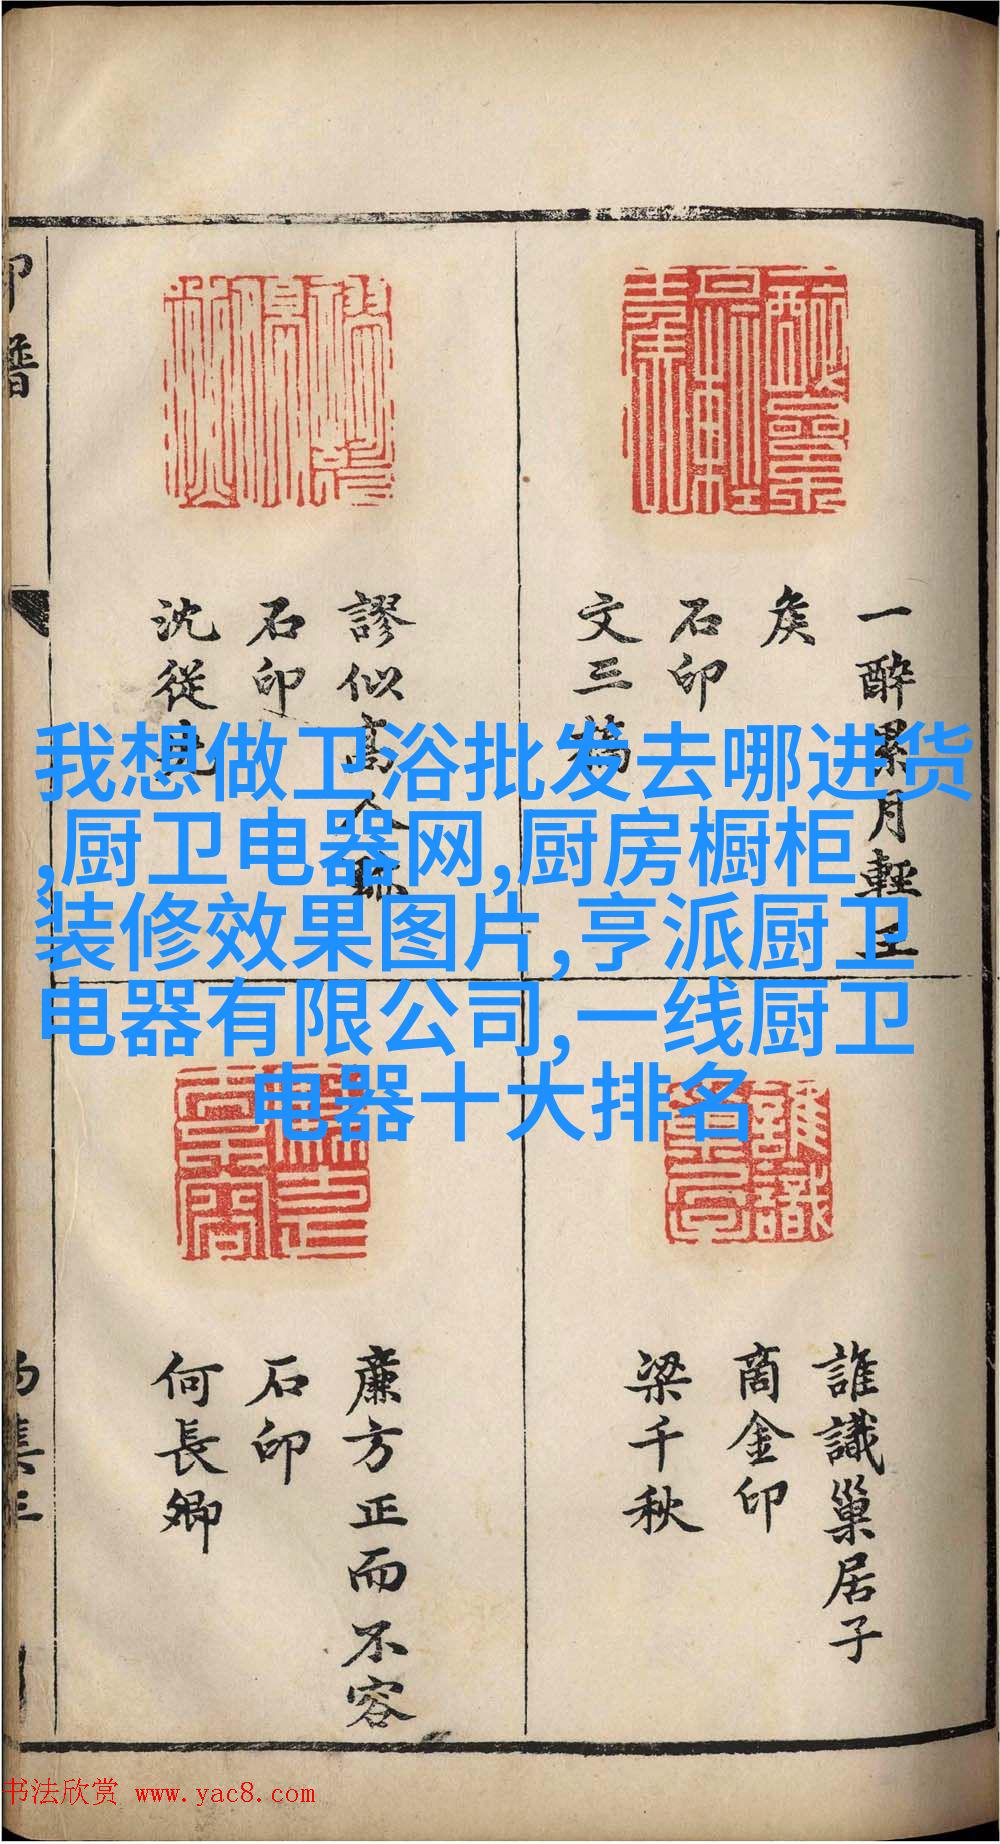 我想做卫浴批发去哪进货
,厨卫电器网,厨房橱柜
装修效果图片,亨派厨卫
电器有限公司,一线厨卫
电器十大排名
一醉累月輕王
矦
石印
文三橋
謬似高人琢
石印
沈從先
誰識巢居子
商金印
梁千秋
廉方正而不容
石印
何長卿
印譜
书法欣赏 www.yac8.com